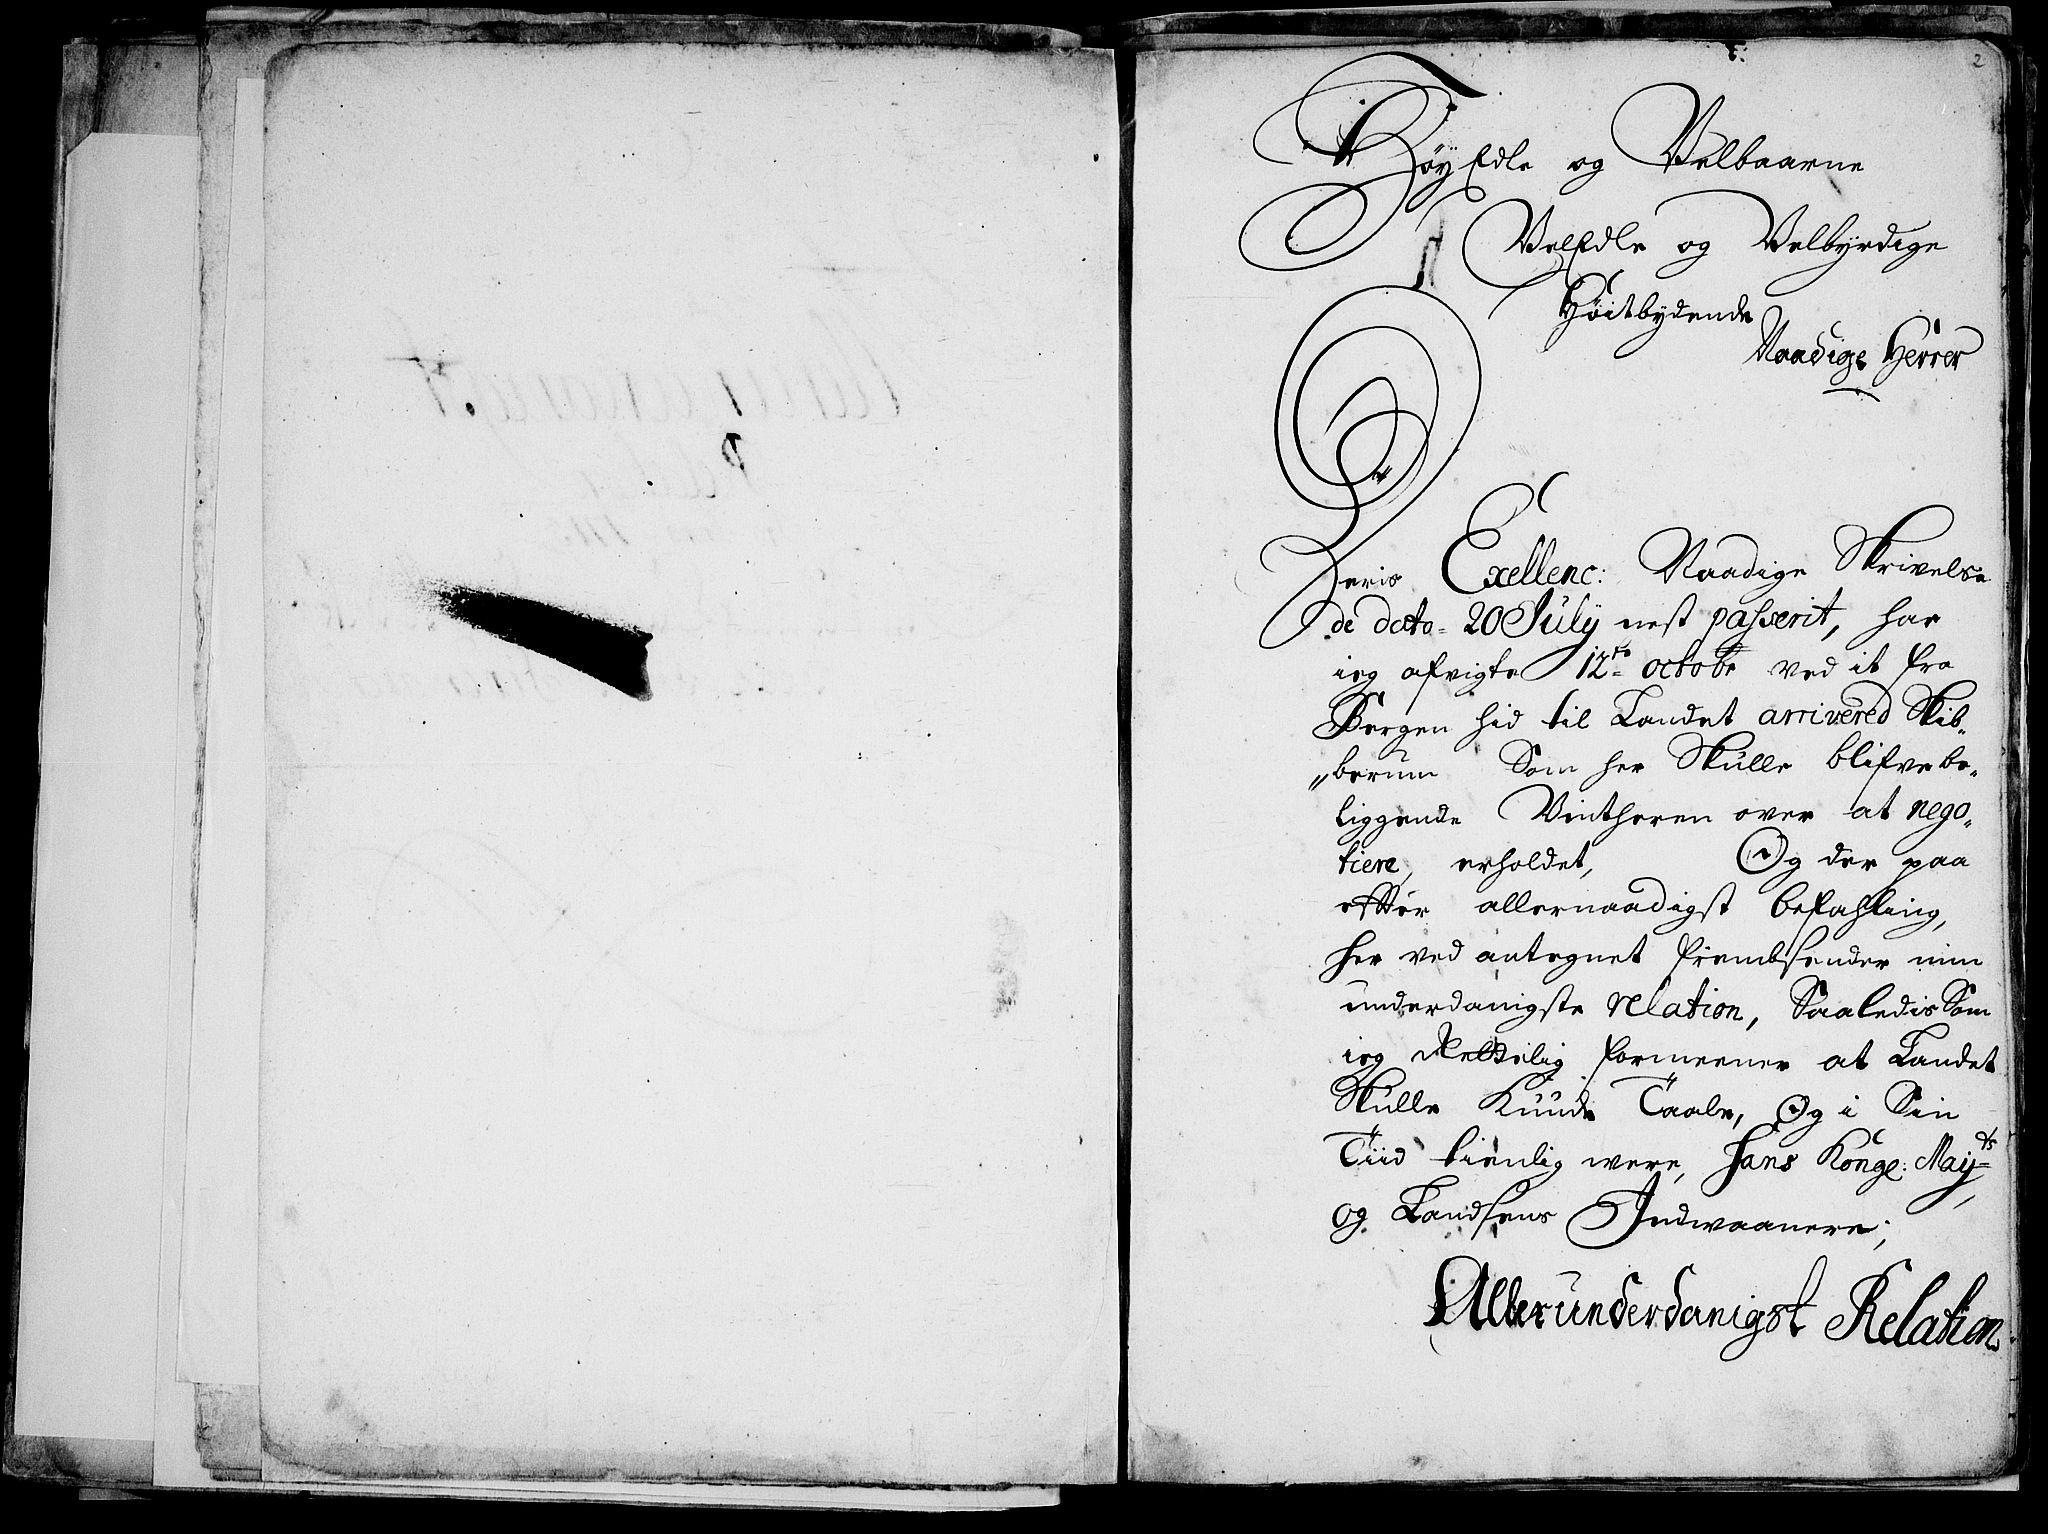 2
Høy Edle og Velbaarne
VelEdle og Velbyrdige
Høitbydende
Naadige Herrer
Deris Exellenc: Naadige Skrivelse
de dato 20 July nest passerit, har
ieg afvigte 12to octobr ved it fra
Bergen hid til Landet arrivered Skib-
berum Som her Skulle blifve be-
liggende Vintheren over at nego-
tiere, erholdet, Og der paa
effter allernaadigst befahling,
her ved antegnet frembsender min
underdanigste relation, Saaledis Som
ieg Rettelig formeener at Landet
Skulle Kunde Taale, Og i Sin
Tiid tienlig were, hans Kongl: Mayts
og Landsens Indwaanere;
Allerunderdanigst Relation